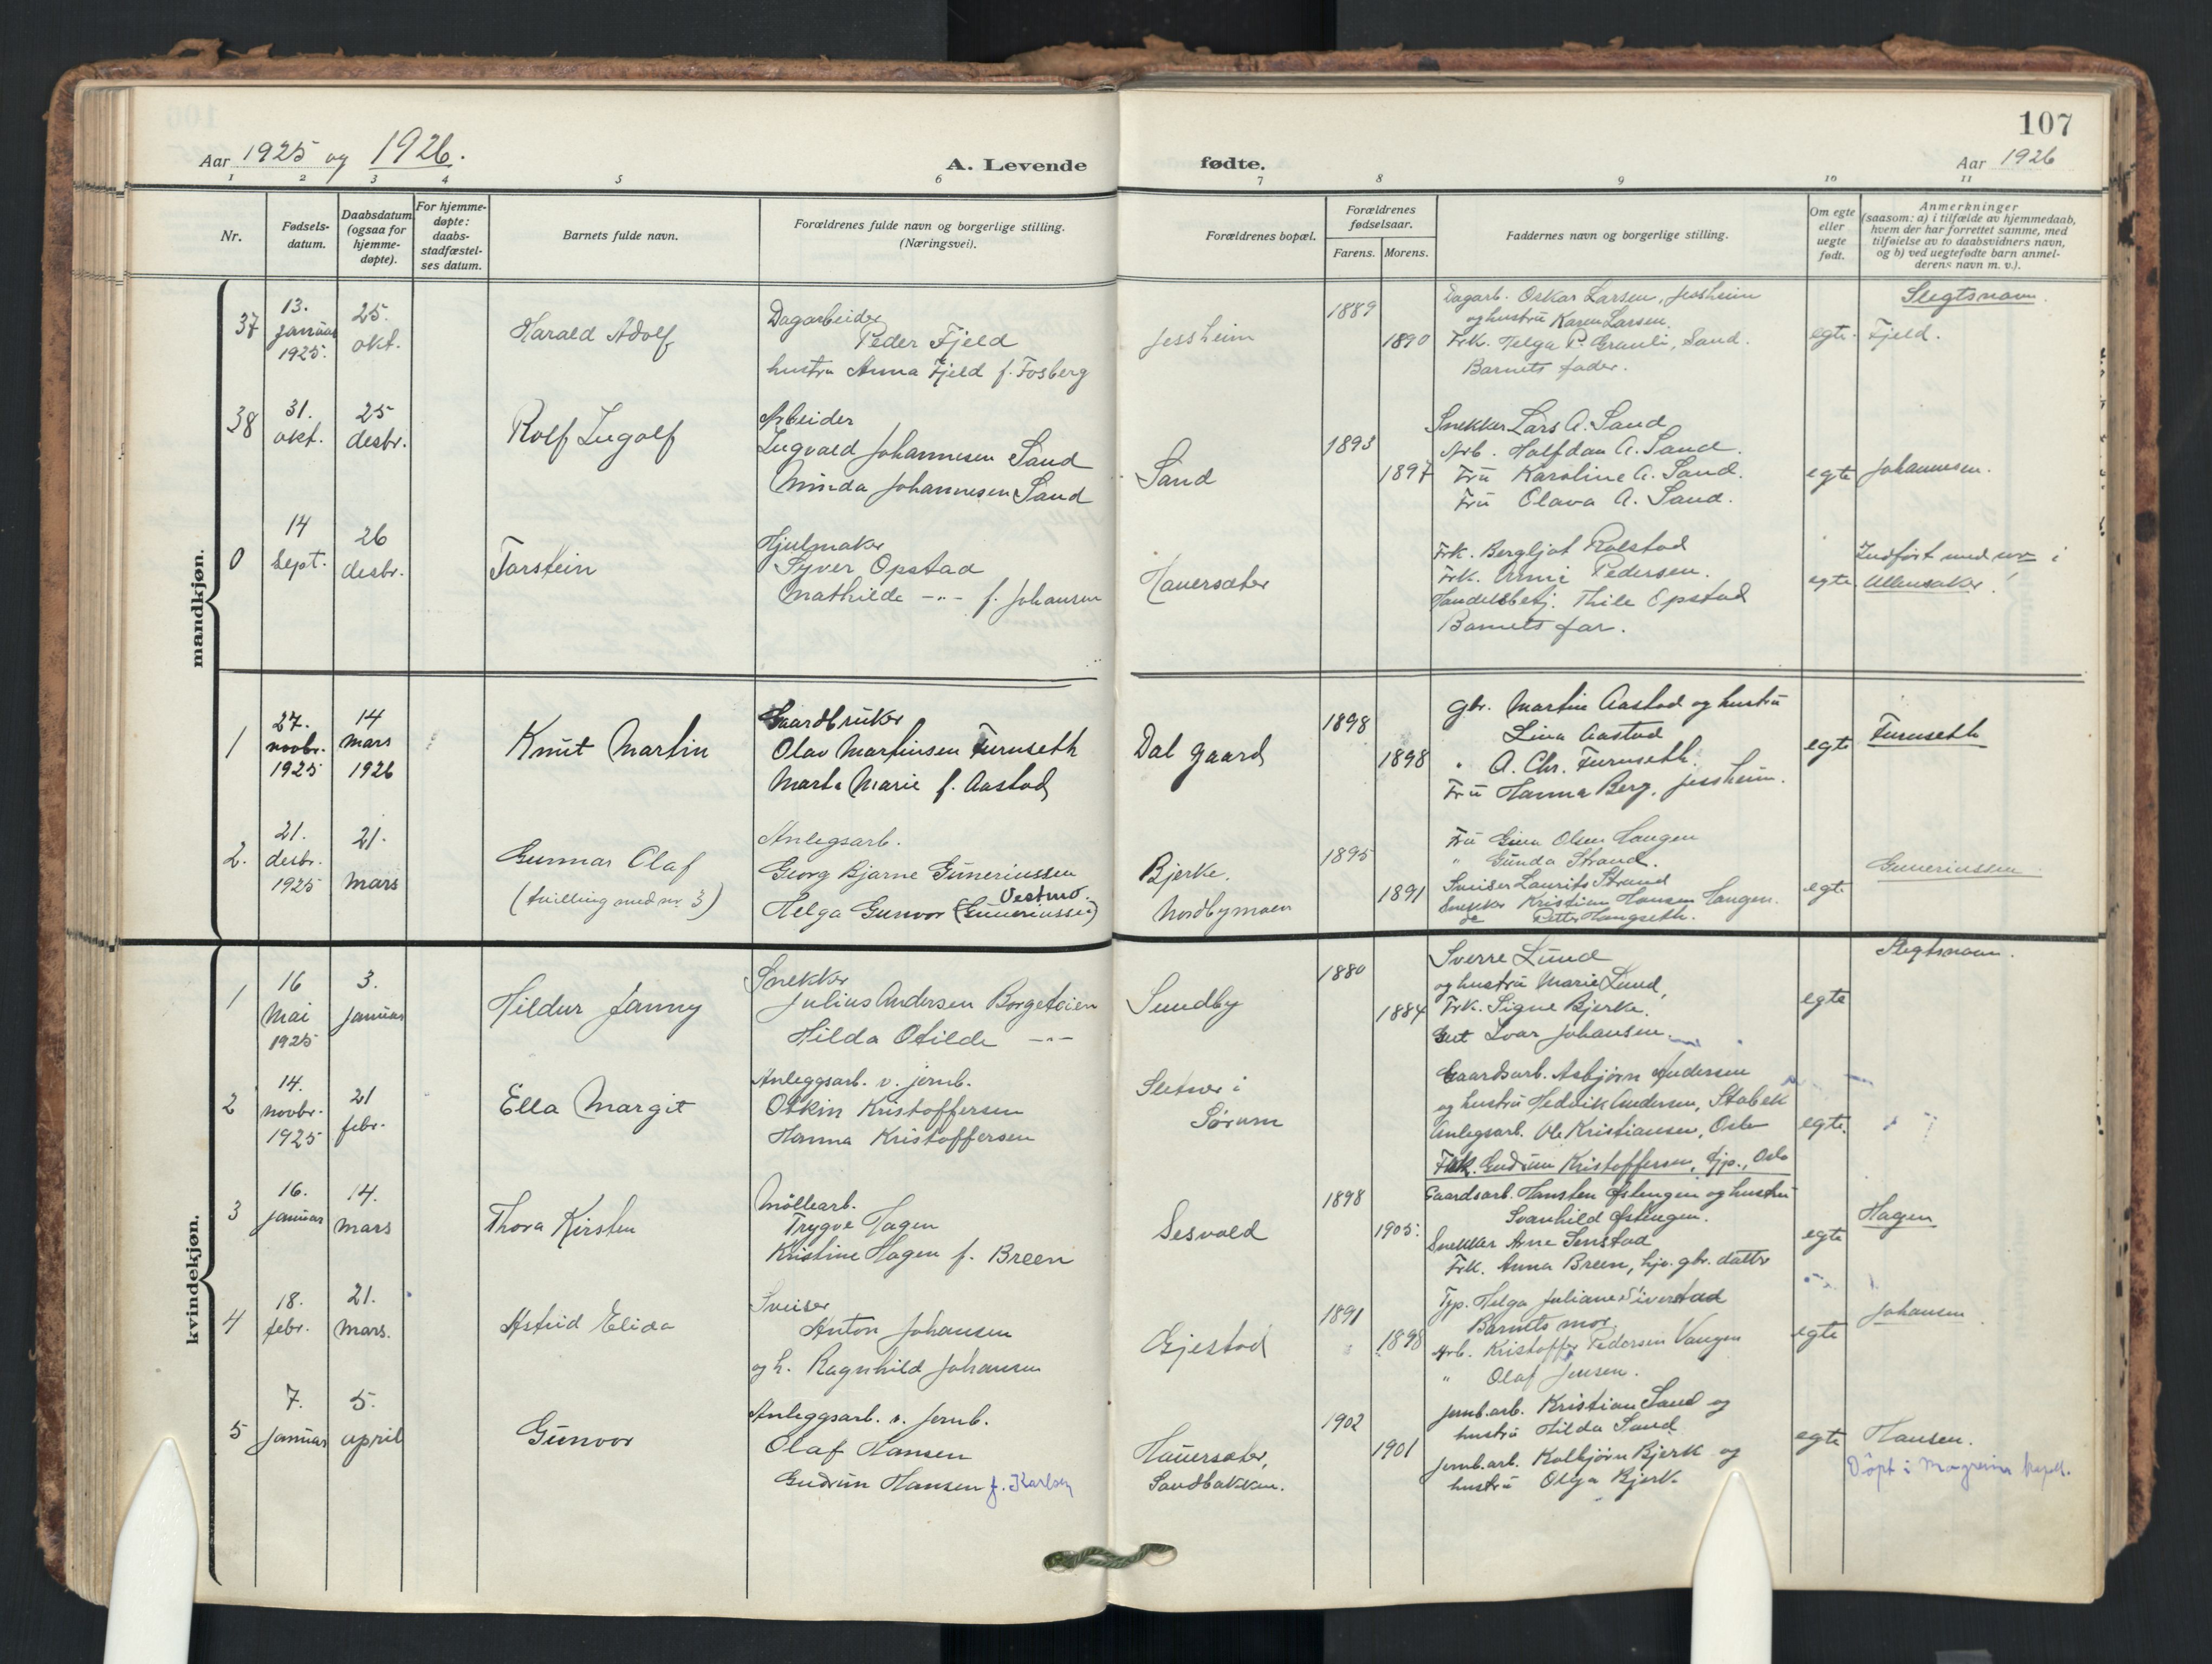 107
Aar 1925 og 1926.
A. Levende fødte.
Aar 1926
1 2 3 4 5 6 7 8 9 10 11
Nr.
Fødsels-
datum.
Daabsdatum
(ogsaa for
hjemme-
døpte).
For hjemme-
døpte:
daabs-
stadfæstel-
ses datum.
Barnets fulde navn.
Forældrenes fulde navn og borgerlige stilling.
(Næringsvei).
Forældrenes bopæl.
Forældrenes
fødselsaar.
Farens. Morens.
Faddernes navn og borgerlige stilling.
Om egte
eller
uegte
født.
Anmerkninger
(saasom: a) i tilfælde av hjemmedaab,
hvem der har forrettet samme, med
tilføielse av to daabsvidners navn,
og b) ved uegtefødte barn anmel-
derens navn m. v.).
mandkjøn.
37
13.
januar
1925.
25.
okt.
Harald Adolf
Dagarbeider
Peder Fjeld
hustru Anna Fjeld f. Fosberg
Jessheim
1889
1890
Dagarb. Oskar Larsen, Jessheim
og hustru Karen Larsen.
Frk. Helga P. Grauli, Sand.
Barnets fader.
egte.
Slegtsnavn.
Fjeld.
38
31.
okt.
25
desbr.
Rolf Ingolf
Arbeider
Ingvald Johannesen Sand
Minda Johannesen Sand
Sand
1893
1897
Snekker Lars A. Sand
Arb. Halfdan A. Sand.
Fru Karoline A. Sand.
Fru Olava A. Sand.
egte
Johannesen.
0
14
Sept.
26
desbr.
Torstein
Hjulmaker
Syver Opstad
Mathilde -"- f. Johansen
Hauersæter
Frk. Bergljot Rolstad
Frk. Anni Pedersen.
Handelsbetj. Thile Opstad
Barnets far.
egte
Indført med nr i
Ullensaker!
1
27.
novbr.
1925
14
mars
1926
Knut Martin
Gaardbruker
Olav Martinsen Furuseth
Marta Marie f. Aastad
Dal gaard
1898
1898
Gbr. Martin Aastad og hustru
Lina Aastad
" A. Chr. Furuseth.
Fru Hanna Berg, Jessheim.
egte
Furuseth
2.
21.
desbr.
1925
21.
mars
Gunnar Olaf
(tvilling med nr. 3)
Anlegsarb.
Georg Bjarne Guneriussen
Vestmo.
Helga Gunvor (Guneriussen)
Bjerke.
Nordbymoen
1895
1891
Fru Gina Olsen Haugen
" Gunda Strand.
Sveiser Laurits Strand
Snekker Kristian Hansen Haugen.
do Petter Haugseth.
egte
Guneriussen
kvindekjøn.
1
16
Mai
1925
3.
januar
Hildur Jenny
Snekker
Julius Andersen Borgetoien
Hilda Otilde -"-
Sundby
1880
1884
Sverre Lund
og hustru Marie Lund,
Frk. Signe Bjerke.
Gut Ivar Johansen.
egte
Slegtsnavn.
2
14.
novbr.
1925
21
febr.
Ella Margit
Anleggsarb. v. jernb.
Otkin Kristoffersen
Hanna Kristoffersen
Sletner i
Sørum
Gaardsarb. Asbjørn Andersen
og hustru Hedvik Andersen, Stabek
Anlegsarb. Ole Kristiansen, Oslo
Frk. Gudrun Kristoffersen, tjp., Oslo
egte.
3
16.
januar
14.
mars
Thora Kirsten
Møllearb.
Trygve Hagen
Kristine Hagen f. Breen
Sesvold
1898
1905.
Gaardsarb. Hansten Østengen og hustru
Svanhild Østengen.
Snekker Arne Senstad
Frk. Anna Breen, hjv. gbr. datter
egte
Hagen
4
18.
febr.
21.
mars.
Astrid Elida
Sveiser
Anton Johansen
og h. Ragnhild Johansen
Gjestad
1891
1898
Typ. Helga Juliane Siverstad
Barnets mor.
Arb. Kristoffer Pedersen Vangen
" Olaf Jensen.
egte
Johansen
5
7.
januar
5.
april
Gunvor
Anleggsarb. v. jernb.
Olaf Hansen
Gudrun Hansen f. Karlsen
Hauersæter,
Sandbakken.
1902
1901
Jernb.arb. Kristian Sand og
hustru Hilda Sand.
Jernb.arb. Kolbjørn Bjerk og
hustru Olga Bjerk.
egte
Hansen.
Døpt i Mogreina kapell.